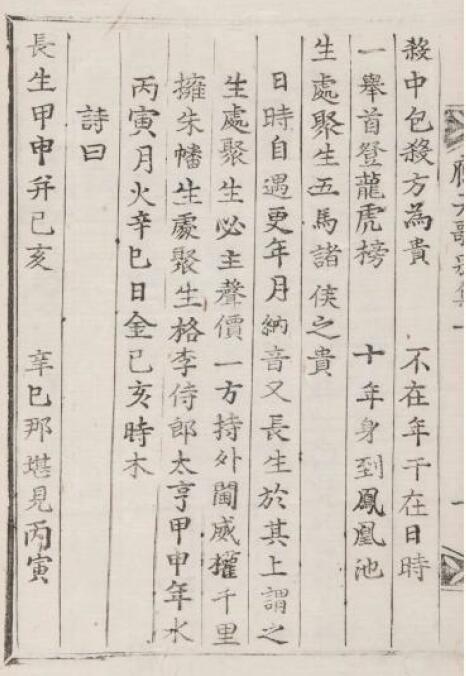 殺中包殺方為貴　不在年干在日時
一舉首登龍虎榜　十年身到鳳凰池
生處聚生五馬諸侯之貴
日時自遇更年月納音又長生於其上謂之
生處聚生必主聲價一方持外閫威權千里
擁朱幡生處聚生格李侍郎太亨甲申年水
丙寅月火辛巳日金己亥時木
詩曰
長生甲申并己亥　辛巳那堪見丙寅